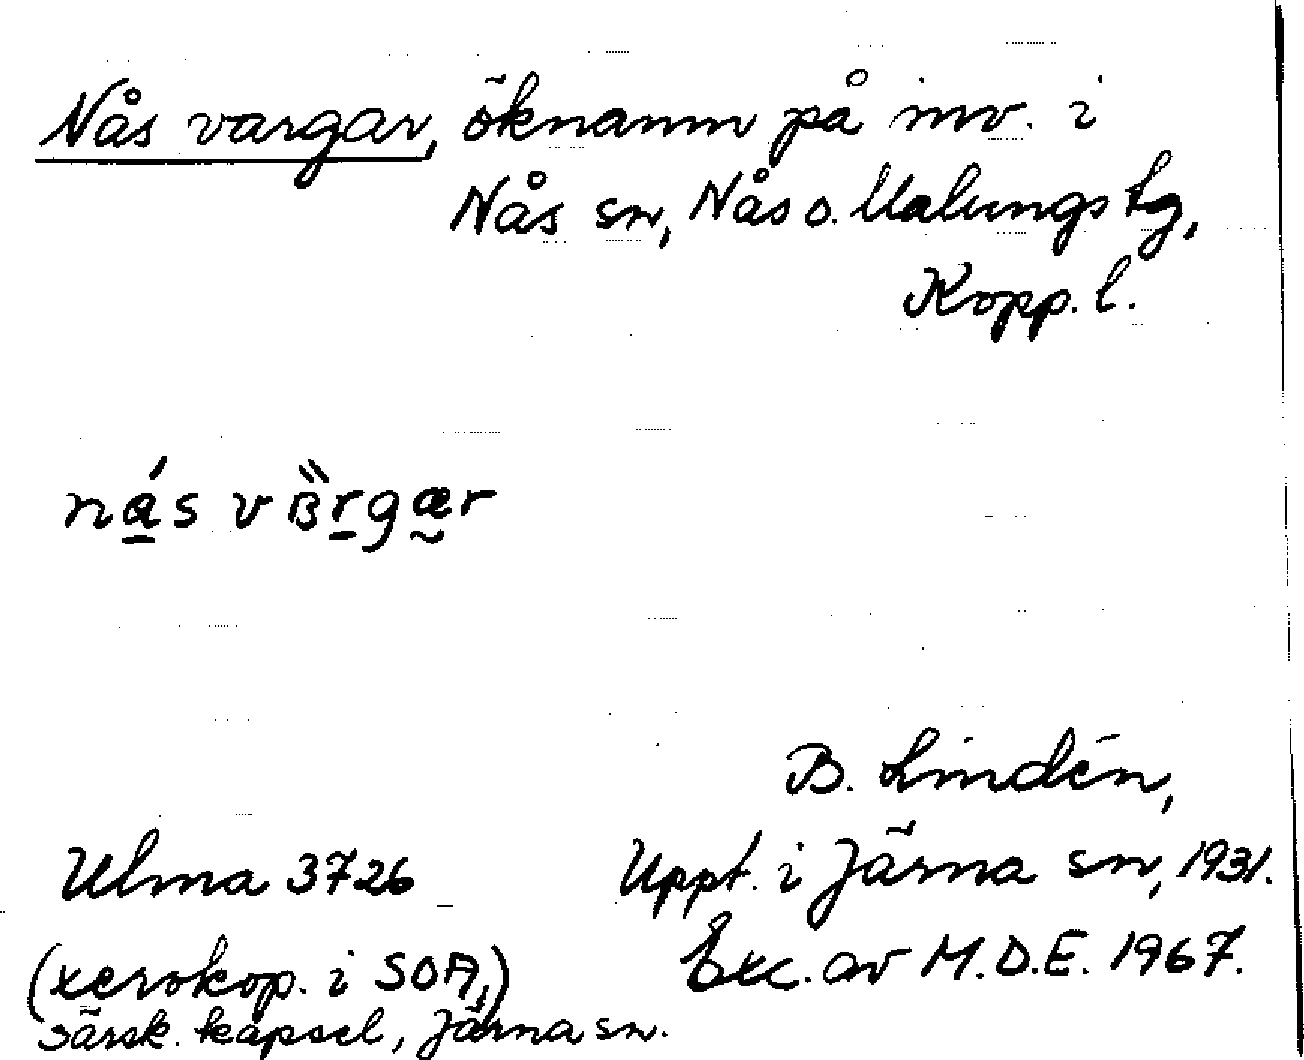 Nås vargar, öknamn på inv. i
Nås sn, Nås o. Malungs tg,
Kopp. l.
nás vᴃ̈rgær
B. Lindén,
Ulma 3726 Uppt. i Järna sn, 1931.
(xerokop. i SOA,) Exc. av M.D.E. 1967.
särsk. kapsel, Järna sn.